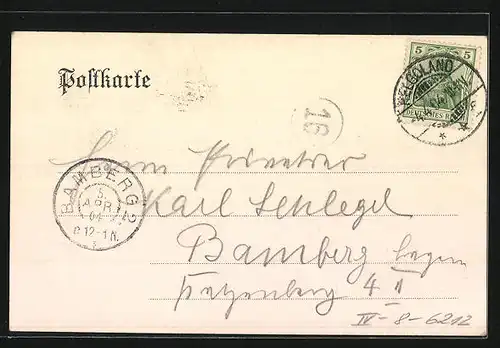 5 5
HELGOLAND
DEUTSCHES REICH
Postkarte
16
Herrn Privatier
BAMBERG 2
5
APR
04
12-1 N.
Karl Schlegel
Bamberg Bayern
4 II
IV-8-6212